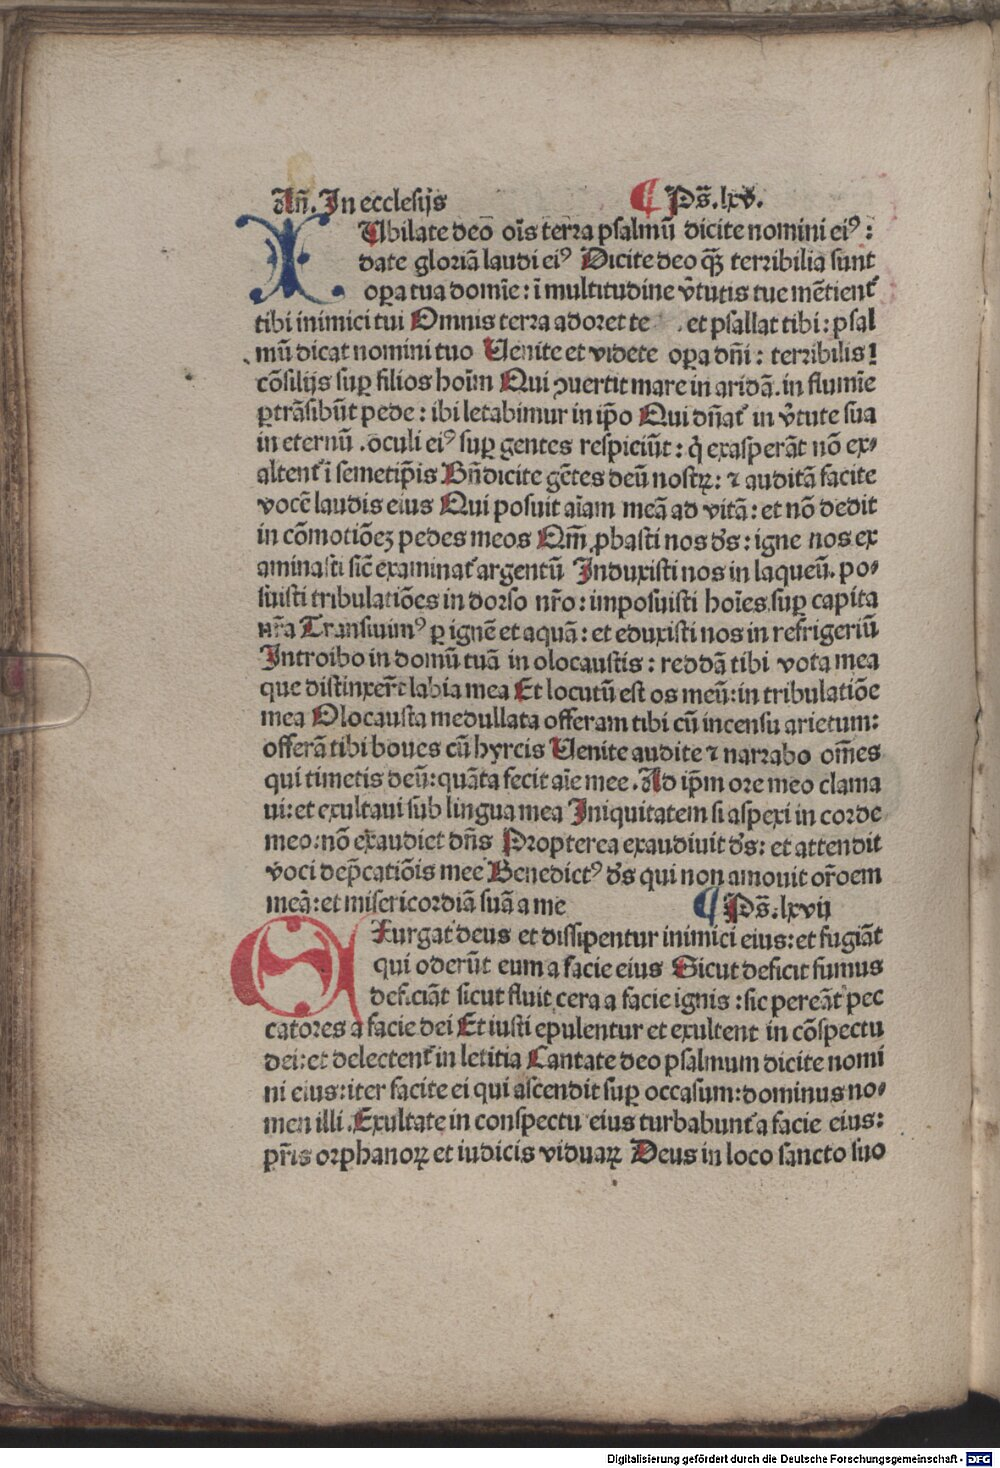 Añ. In ecclesijs ¶ Ps̄. lxv.
IUbilate deō oīs terra psalmū dicite nomini ei⁹ :
date gloriā laudi ei⁹ Dicite deo qꝫ̄ terribilia sunt
oꝑa tua domīe : ī multitudine v̄tutis tue mētient᷑
tibi inimici tui Omnis terra adoret te . et psallat tibi : psal
mū dicat nomini tuo Uenite et videte oꝑa dn̄i : terribilis ī
cōsilijs suꝑ filios hoīm Qui ꝯuertit mare in aridā . in flumīe
ꝑtrāsibūt pede : ibi letabimur in ip̄o Qui dn̄at᷑ in v̄tute sua
in eternū . oculi ei⁹ suꝑ gentes respiciūt : q̄ exasperāt nō ex⸗
altent᷑ ī semetip̄is Bn̄dicite gētes deū nostꝝ : ⁊ auditā facite
vocē laudis eius Qui posuit aīam meā ad vitā : et nō dedit
in cōmotiōeꝫ pedes meos Qm̄ ꝓbasti nos ds̄ : igne nos ex
aminasti sic̄ examinat᷑ argentū Induxisti nos in laqueū . po⸗
suisti tribulatiōes in dorso nr̄o : imposuisti hoīes suꝑ capita
nr̄a Transiuim⁹ ꝑ ignē et aquā : et eduxisti nos in refrigeriū
Introibo in domū tuā in olocaustis : reddā tibi vota mea
que distinxer̄t labia mea Et locutū est os meū : in tribulatiōe
mea Olocausta medullata offeram tibi cū incensu arietum :
offerā tibi boues cū hyrcis Uenite audite ⁊ narrabo om̄es
qui timetis deū : quāta fecit aīe mee . Ad ip̄m ore meo clama
ui : et exultaui sub lingua mea Iniquitatem si aspexi in corde
meo : nō exaudiet dn̄s Propterea exaudiuit ds̄ : et attendit
voci dep̄catiōis mee Benedict⁹ ds̄ qui non amouit or̄oem
meā : et misericordiā suā a me ¶ Ps̄. lxvij
EXurgat deus et dissipentur inimici eius : et fugiāt
qui oderūt eum a facie eius Sicut deficit fumus
deficiāt sicut fluit cera a facie ignis : sic pereāt pec
catores a facie dei Et iusti epulentur et exultent in cōspectu
dei : et delectent᷑ in letitia Cantate deo psalmum dicite nomi
ni eius : iter facite ei qui ascendit suꝑ occasum : dominus no⸗
men illi . Exultate in conspectu eius turbabunt᷑ a facie eius :
pr̄is orphanoꝝ et iudicis viduaꝝ Deus in loco sancto suo
Digitalisierung gefördert durch die Deutsche Forschungsgemeinschaft - DFG